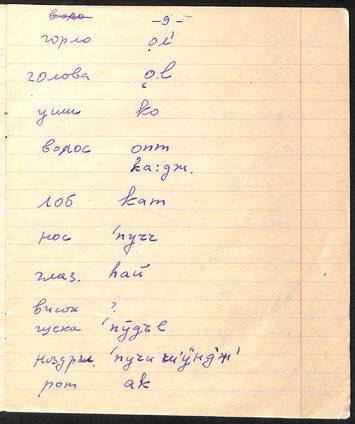 -9-
горло о̨л'
голова о̨в
уши ко
волос опт
ка:дж.
лоб кат
нос 'пучч
глаз. һай
висок ?
щека 'пӯдъл
ноздри. 'пучи
рот ак